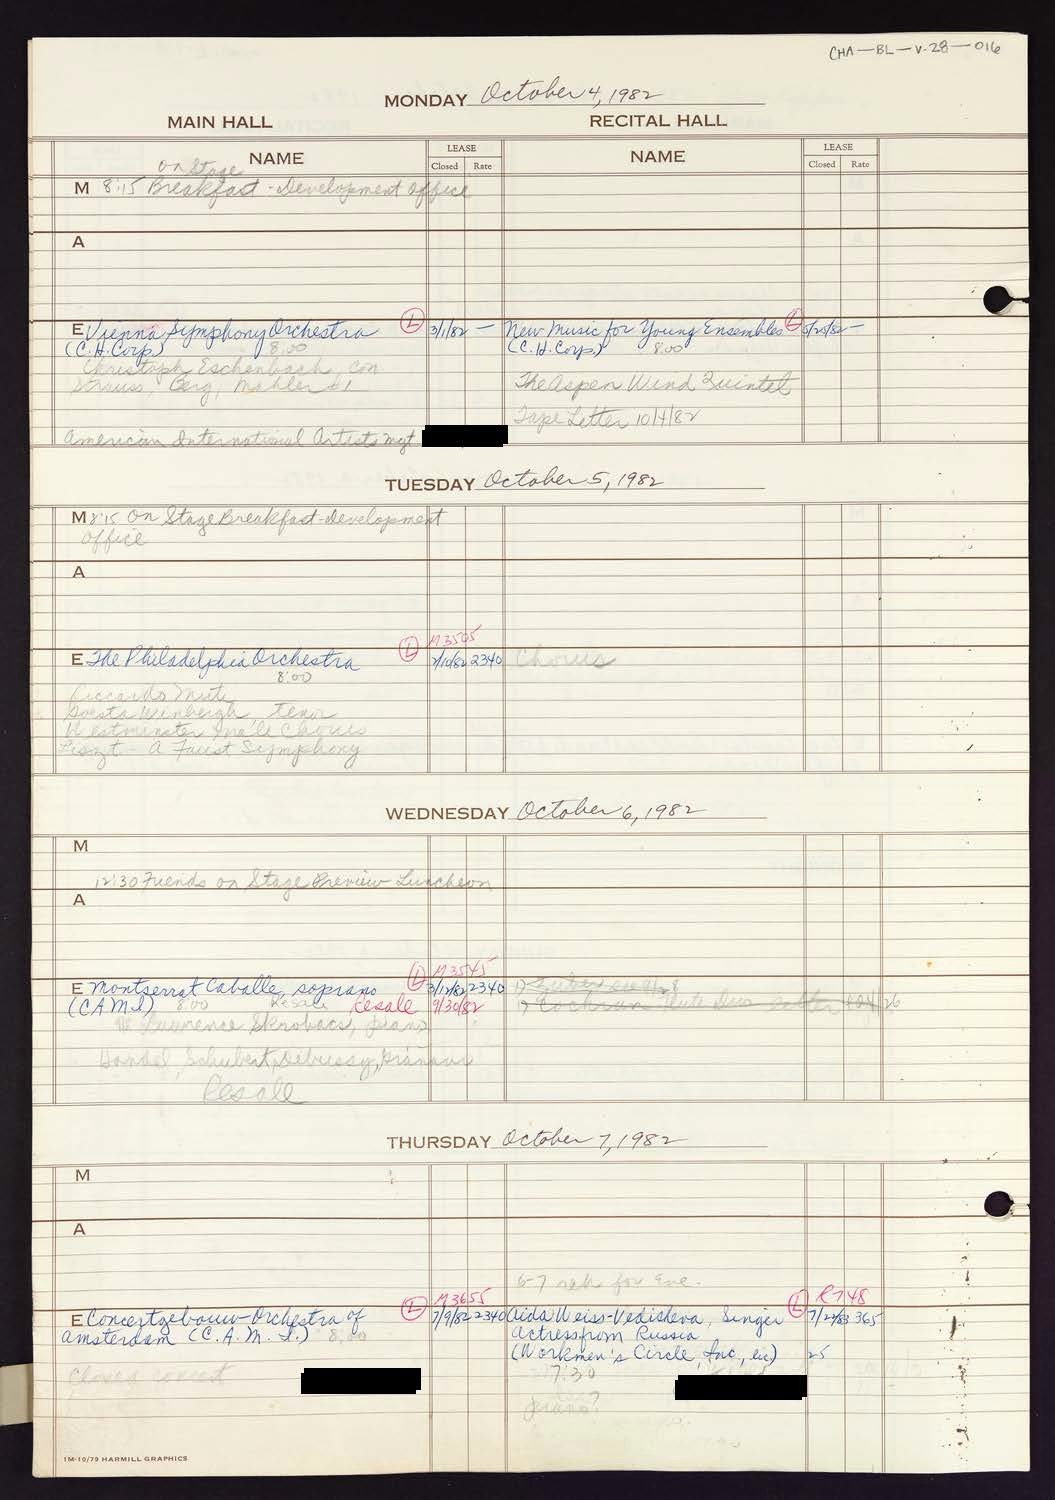 CHA-BL-V-28-016
MONDAY October 4, 1982
MAIN HALL
RECITAL HALL
NAME
LEASE
Closed Rate
NAME
LEASE
Closed Rate
on Stage
M 8:15 Breakfast - Development Office
A
E Vienna Symphony Orchestra L 3/1/82 —
(C.H. Corp.) 8:00
Christoph Eschenbach, con
Strauss, Berg, Mahler #1
American International Artists Mgt
New Music for Young Ensembles L 5/20/82 —
(C.H. Corp.) 8:00
The Aspen Wind Quintet
Tape Letter 10/4/82
TUESDAY October 5, 1982
M 8:15 On Stage Breakfast - Development
Office
A
M3505
E The Philadelphia Orchestra L 7/10/82 2340
8:00
Riccardo Muti
Gosta Winbergh tenor
Westminster Male Chorus
Liszt - A Faust Symphony
Chorus
WEDNESDAY October 6, 1982
M
12:30 Friends on Stage Preview Luncheon
A
M3545
E Montserrat Caballe, soprano L 3/12/82 2340
(CAMI) 8:00 Resale Resale 9/30/82
Lawrence Skrobacs, piano
Handel, Schubert, Debussy,
Resale
1)
1) Cochran Flute Duo
THURSDAY October 7, 1982
M
A
M3655
E Concertgebouw-Orchestra of L 7/9/82 2340
Amsterdam (C.A.M.I.) 8:00
Chover concert
6-7 reh for Eve.
R748
Aida Weiss-Vedisheva, Singer L 7/27/83 365
Actress from Russia
(Workmen's Circle, Inc, lic) 25
7:30
piano?
1M-10/79 HARMILL GRAPHICS